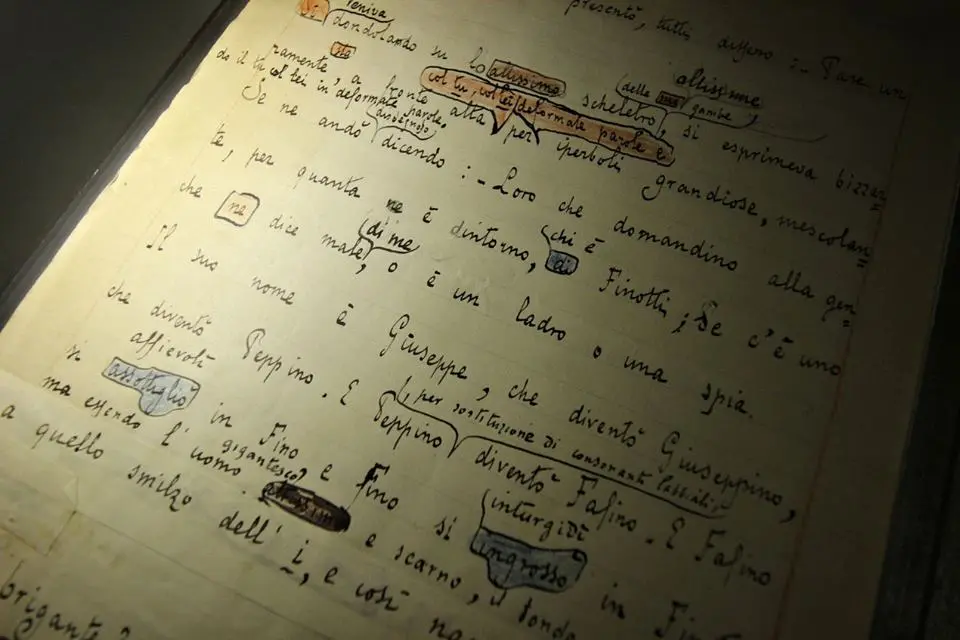 presentò, tutti dissero :- Pare un
veniva
Si dondolando su lo altissimo scheletro, si esprimeva bizzar=
delle sue gambe altissime
sta
col tu, col lei deformate parole e
zamente, a fronte alta per iperboli grandiose, mescolan=
do il tu col lei in deformate parole.
Se ne andò dicendo :- Loro che domandino alla gen=
chi è
te, per quanta ne è dintorno, di Finotti; Se c'è uno
di me
che ne dice male, o è un ladro o una spia.
Il suo nome è Giuseppe, che diventò Giuseppino,
, per sostituzione di consonanti labbiali,
che diventò Peppino. E Peppino diventò Fafino. E Fafino
affievolì
inturgidì
si assottigliò in Fino e Fino si ingrosso in
gigantesco,
ma essendo l'uomo e scarno, il tondo
a quello smilzo dell'i, e così
brigante?